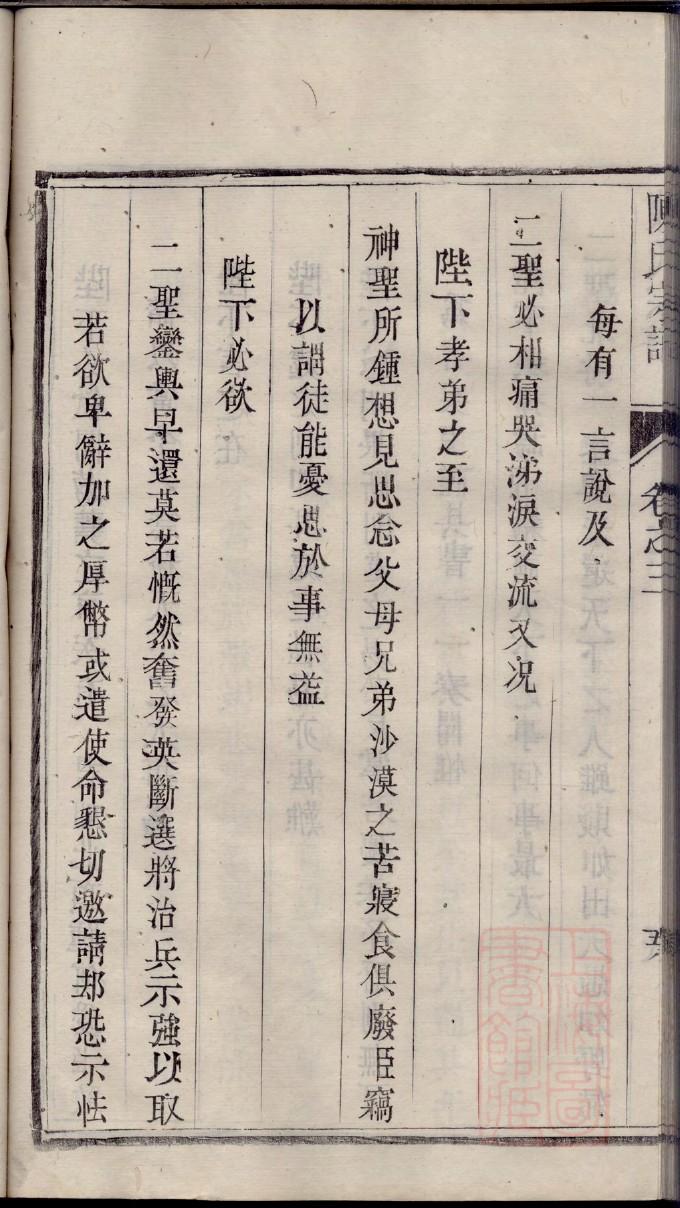 陳氏宗譜
卷之三
每有一言說及
二聖必相痛哭涕淚交流又况
陛下孝弟之至
神聖所鍾想見思念父母兄弟沙漠之苦寢食俱廢臣竊
以謂徒能憂思於事無益
陛下必欲
二聖鑾輿早還莫若慨然奮發英斷選將治兵示強以取
若欲卑辭加之厚幣或遣使命懇切邀請却恐示怯